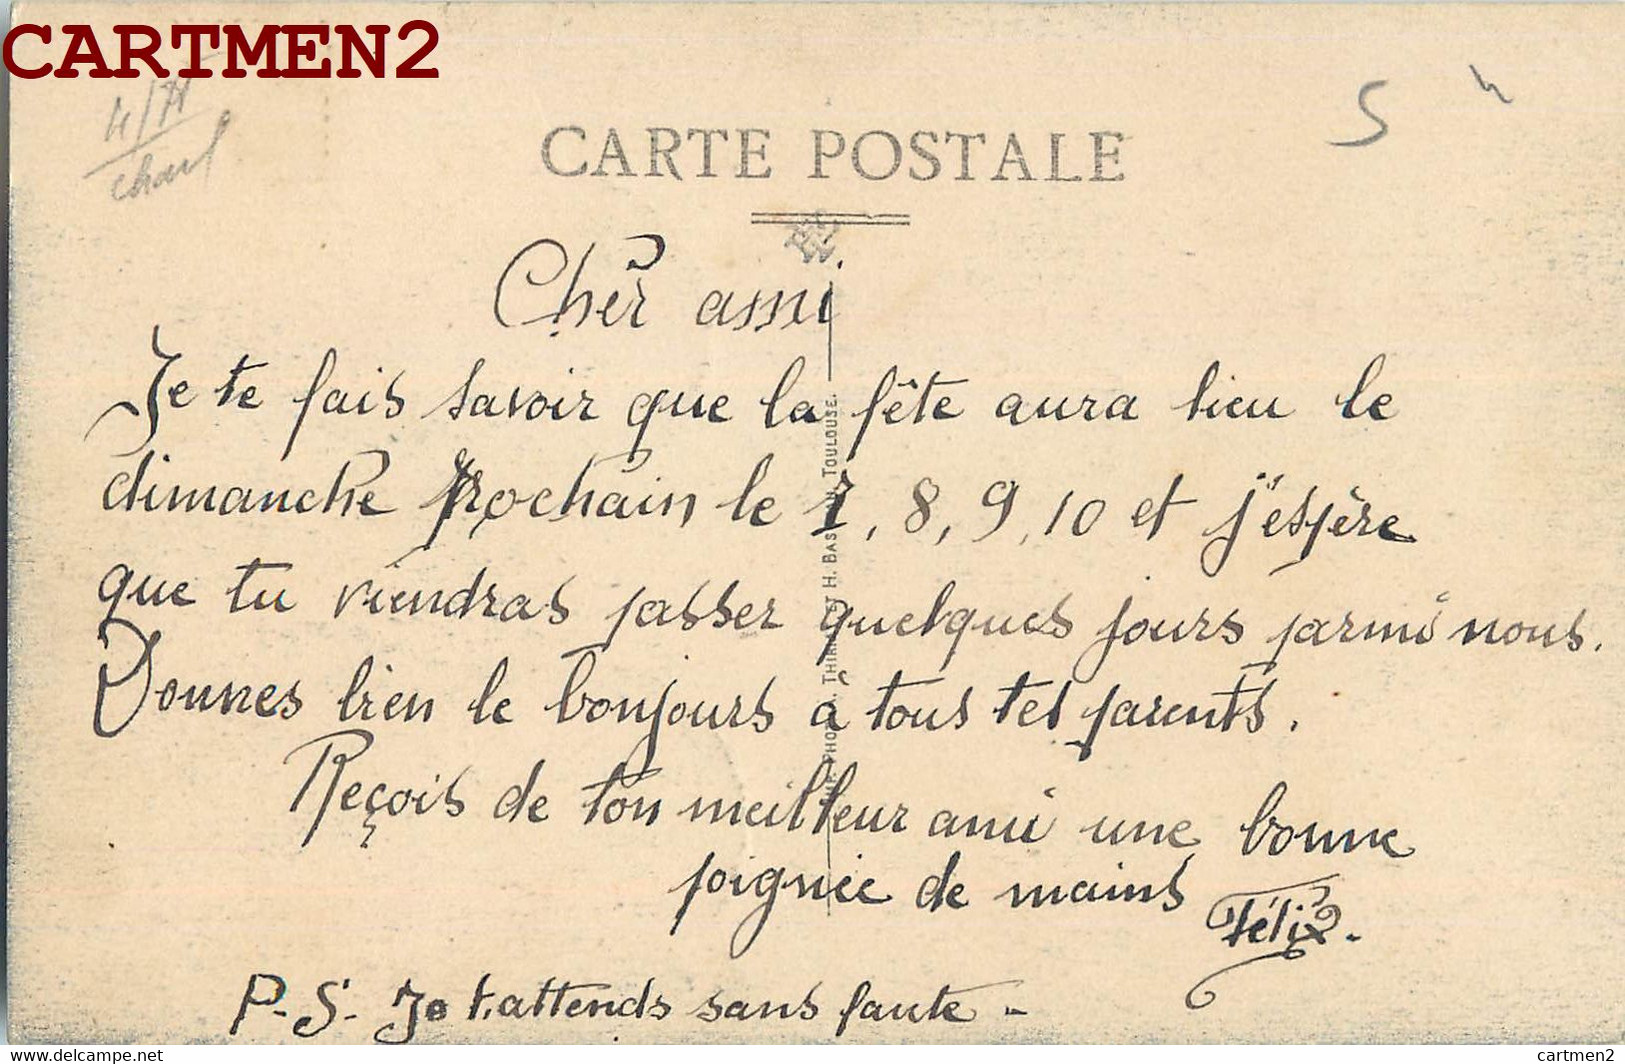 CARTMEN2
CARTE POSTALE
Cher ami
Je te fais savoir que la fête aura lieu le
dimanche prochain le 7, 8, 9, 10 et j'espère
que tu viendras passer quelques jours parmi nous.
Donnes bien le bonjours à tous tes parents.
Reçois de ton meilleur ami une bonne
poignée de mains
Félix.
P.-S.- Je t'attends sans faute -
TOULOUSE.
delcampe.net
cartmen2